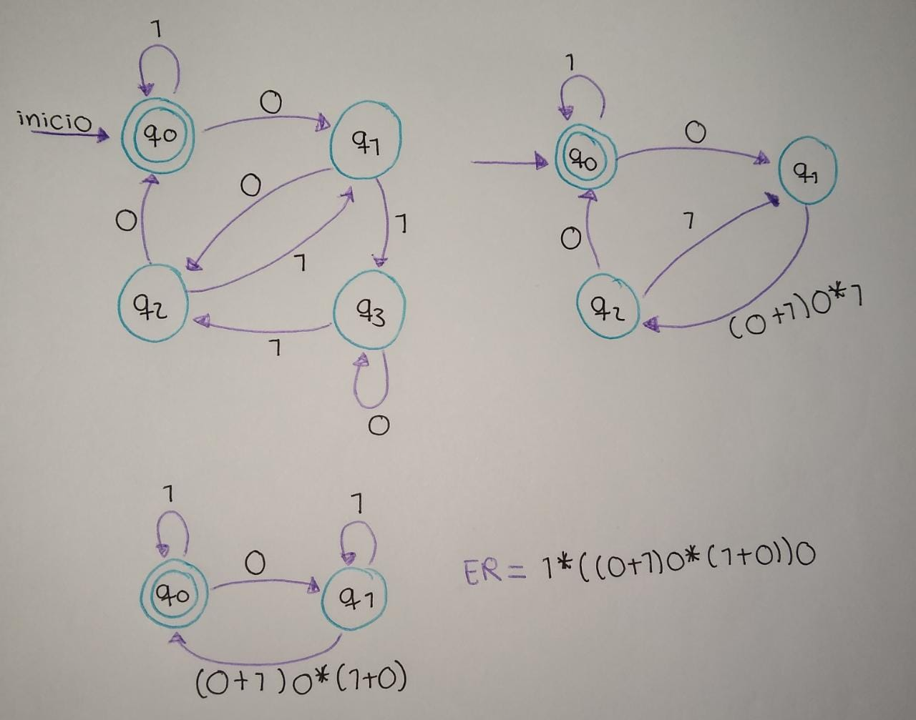 1
inicio
q0
0
q1
0
0
1
1
q2
q3
1
0
1
q0
0
q1
0
1
q2
(0+1)0*1
1
1
q0
0
q1
(0+1)0*(1+0)
ER= 1*((0+1)0*(1+0))0